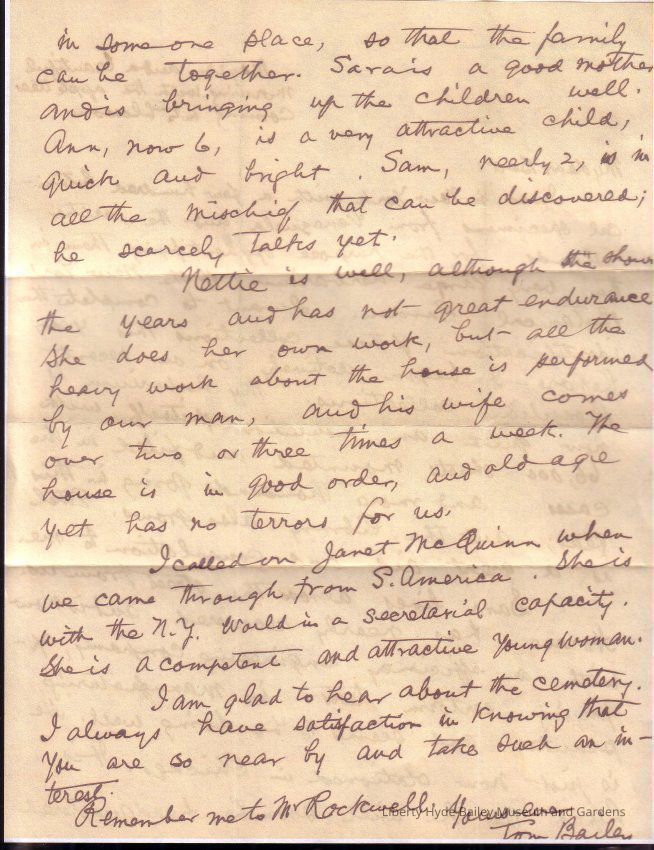 in some one place, so that the family
can be together. Sara is a good mother
and is bringing up the children well.
Ann, now 6, is a very attractive child,
quick and bright. Sam, nearly 2, is in
all the mischief that can be discovered;
he scarcely talks yet.
Nettie is well, although she shows
the years and has not great endurance
She does her own work, but all the
heavy work about the house is performed
by our man, and his wife comes
over two or three times a week. The
house is in good order, and old age
yet has no terrors for us.
I called on Janet McQuinn when
we came through from S. America. She is
with the N.Y. World in a secretarial capacity.
She is a competent and attractive young woman.
I am glad to hear about the cemetery.
I always have satisfaction in knowing that
you are so near by and take such an in-
terest.
Remember me to Mr Rockwell. Yours ever
Tom Bailey
Liberty Hyde Bailey Museum and Gardens